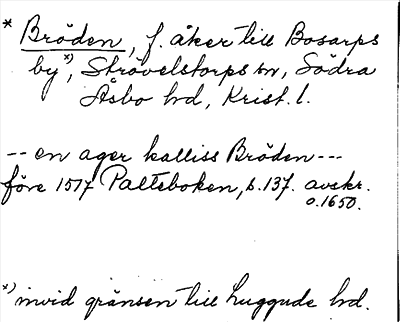 * Bröden, f. åker till Bosarps
by *), Strövelstorps sn, Södra
Åsbo hd, Krist. l.
-- en ager kalliss Bröden ---
före 1517 Palteboken, s. 137. avskr.
o. 1650.
*) invid gränsen till Luggude hd.